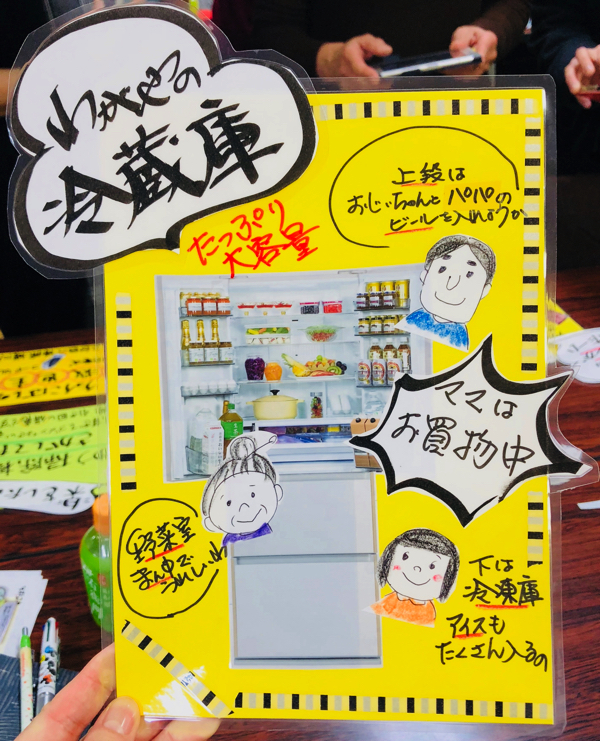 わがやの
冷蔵庫
たっぷり
大容量
上段は
おじいちゃんと パパの
ビールを入れようか
ママは
お買物中
野菜室
まん中で
うれしいわ
下は
冷凍庫
アイスも
たくさん入るの